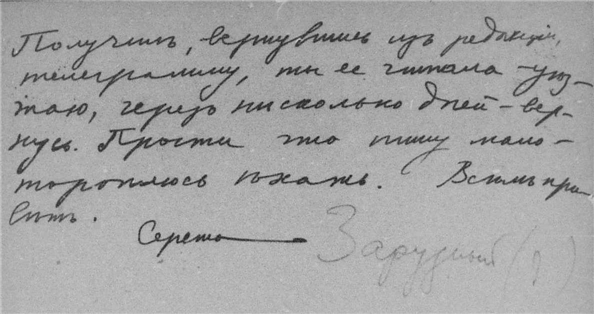 Получилъ, вернувшись изъ редакціи,
телеграмму, ты ее читала – уѣз-
жаю, черезъ нѣсколько дней – вер-
нусь. Прости что пишу мало –
тороплюсь ѣхать. Всѣмъ при-
вѣтъ.
Сережа
Зарудный (?)